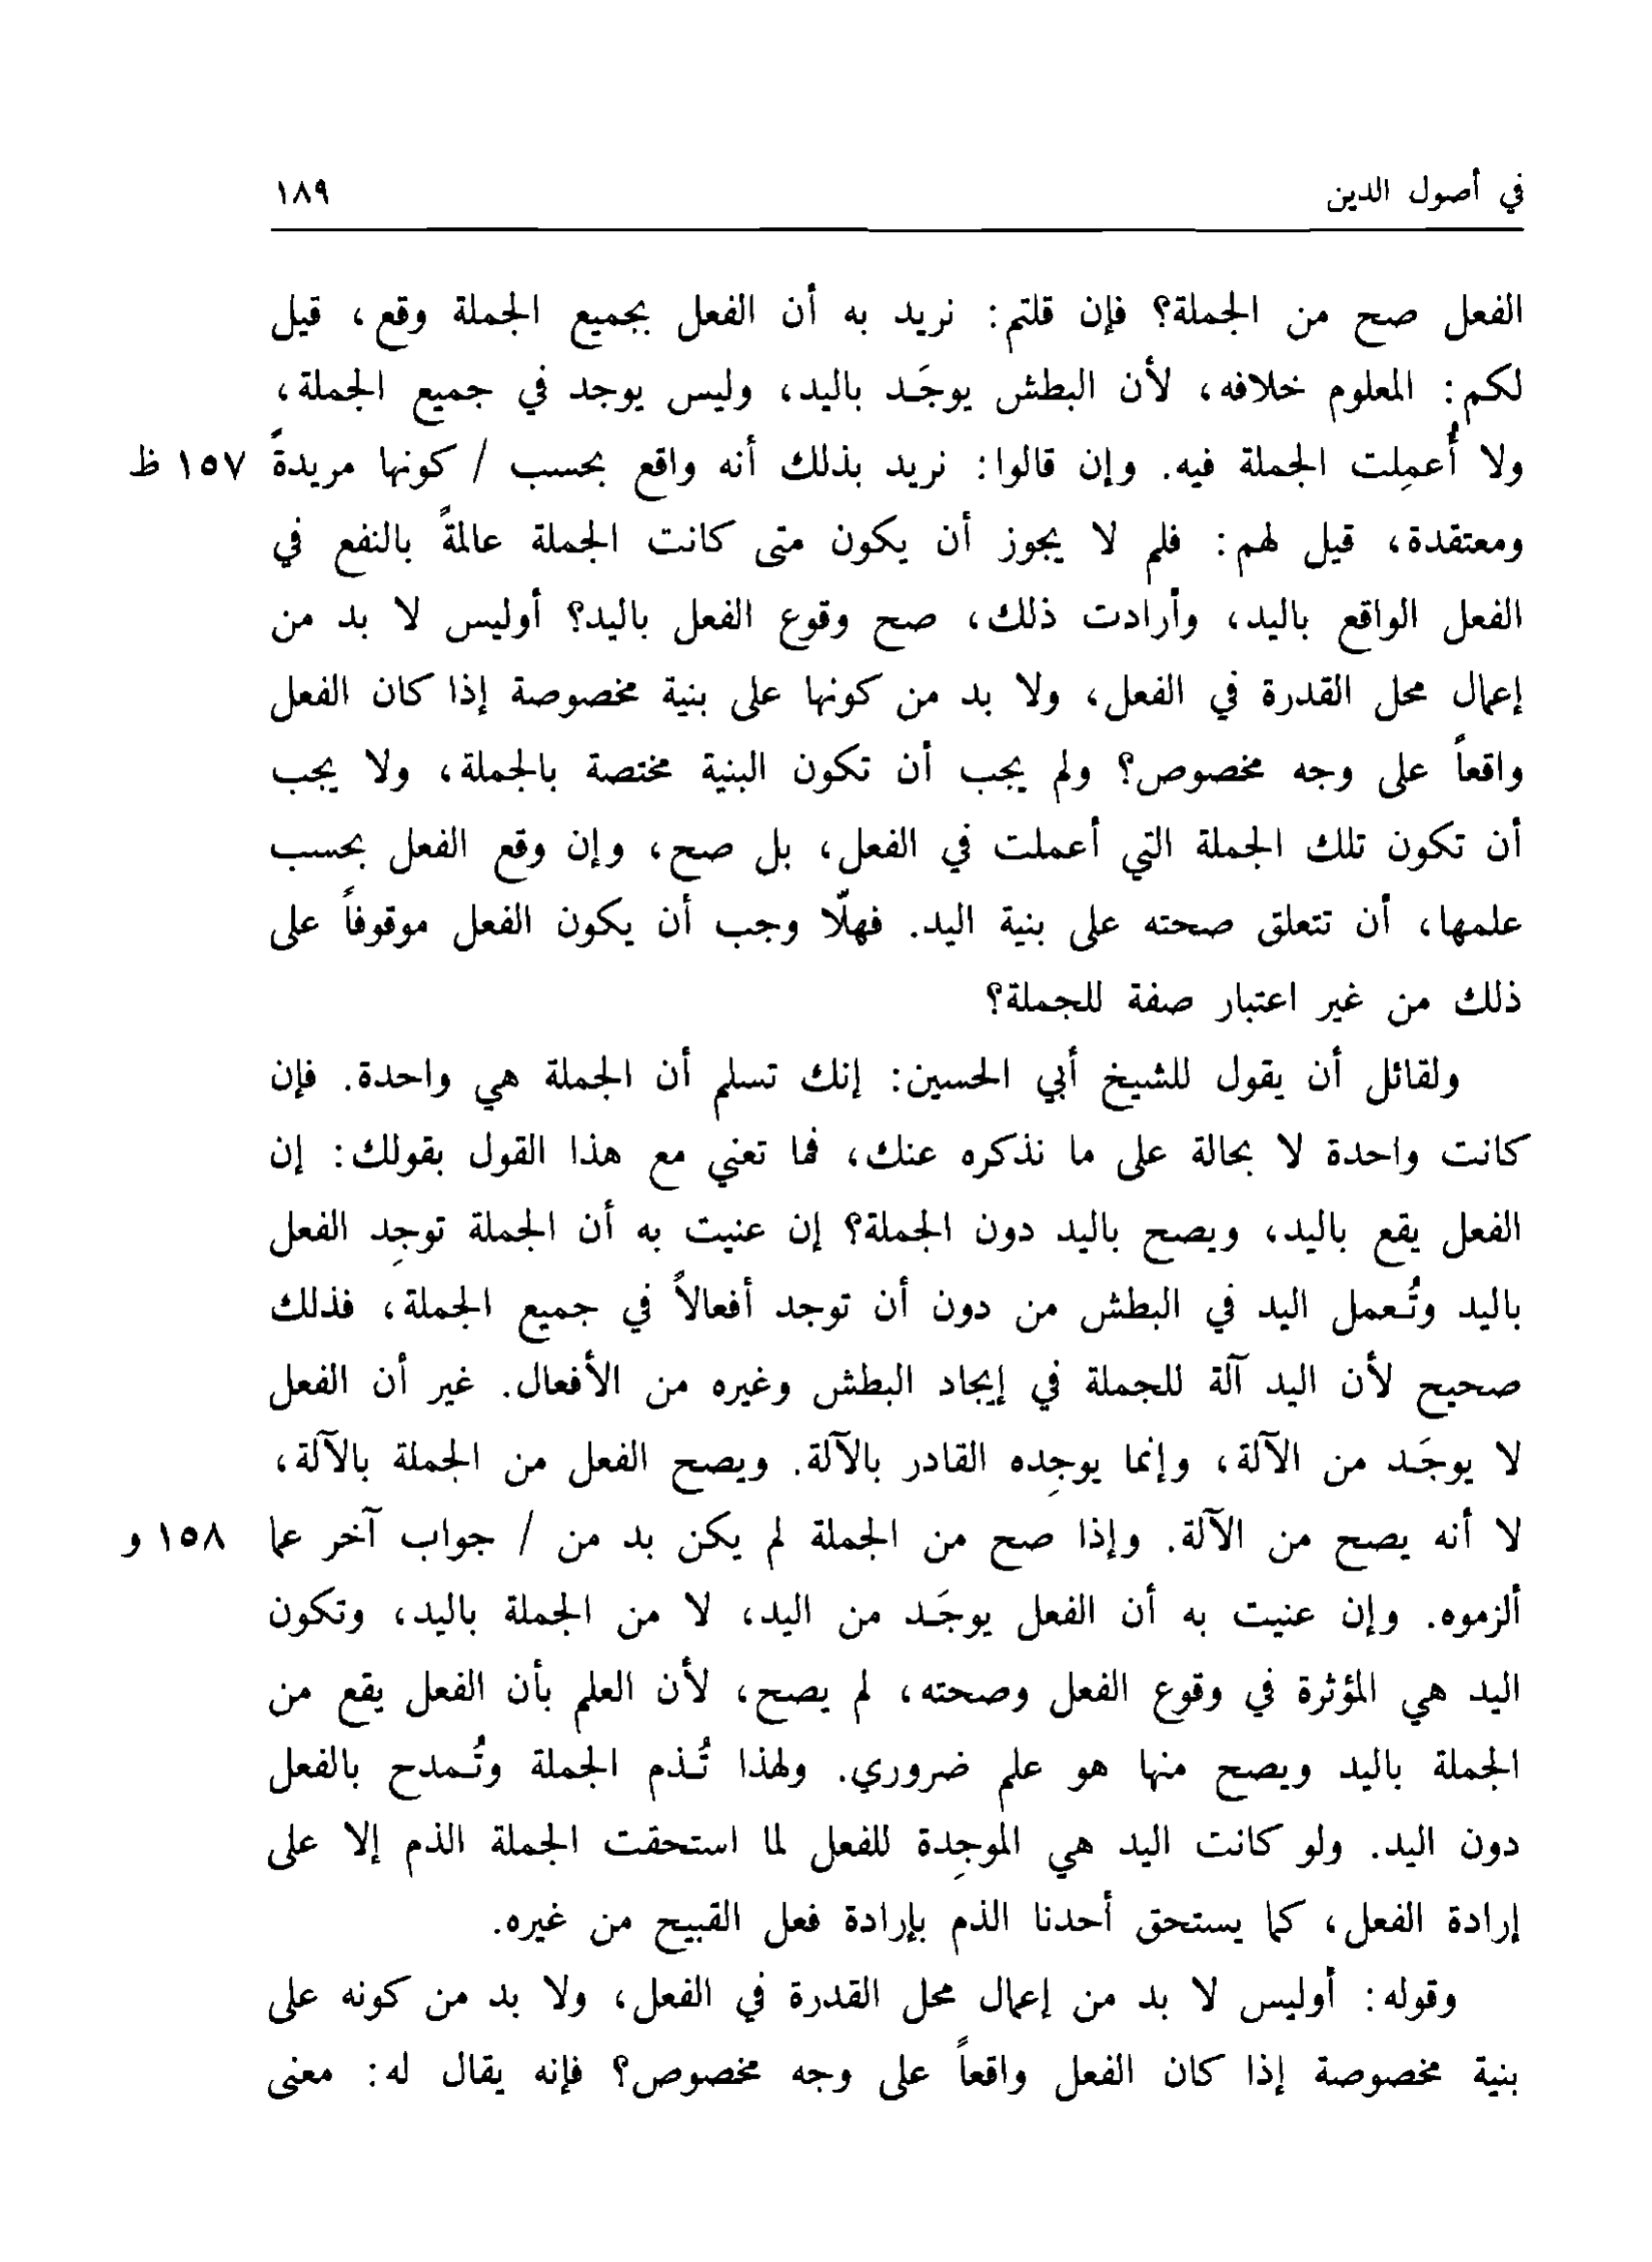 في أصول الدين ١٨٩
الفعل صح من الجملة؟ فإن قلتم: نريد به أن الفعل بجميع الجملة وقع، قيل
لكم: المعلوم خلافه، لأن البطش يوجَد باليد، وليس يوجد في جميع الجملة،
ولا أُعمِلت الجملة فيه. وإن قالوا: نريد بذلك أنه واقع بحسب / كونها مريدةً ١٥٧ ظ
ومعتقدة، قيل لهم: فلم لا يجوز أن يكون متى كانت الجملة عالمةً بالنفع في
الفعل الواقع باليد، وأرادت ذلك، صح وقوع الفعل باليد؟ أوليس لا بد من
إعمال محل القدرة في الفعل، ولا بد من كونها على بنية مخصوصة إذا كان الفعل
واقعاً على وجه مخصوص؟ ولم يجب أن تكون البنية مختصة بالجملة، ولا يجب
أن تكون تلك الجملة التي أعملت في الفعل، بل صح، وإن وقع الفعل بحسب
علمها، أن تتعلق صحته على بنية اليد. فهلّا وجب أن يكون الفعل موقوفاً على
ذلك من غير اعتبار صفة للجملة؟
ولقائل أن يقول للشيخ أبي الحسين: إنك تسلم أن الجملة هي واحدة. فإن
كانت واحدة لا بحالة على ما نذكره عنك، فما تعني مع هذا القول بقولك: إن
الفعل يقع باليد، ويصح باليد دون الجملة؟ إن عنيت به أن الجملة توجِد الفعل
باليد وتُعمل اليد في البطش من دون أن توجد أفعالاً في جميع الجملة، فذلك
صحيح لأن اليد آلة للجملة في إيجاد البطش وغيره من الأفعال. غير أن الفعل
لا يوجَد من الآلة، وإنما يوجِده القادر بالآلة. ويصح الفعل من الجملة بالآلة،
لا أنه يصح من الآلة. وإذا صح من الجملة لم يكن بد من / جواب آخر عما ١٥٨ و
ألزموه. وإن عنيت به أن الفعل يوجَد من اليد، لا من الجملة باليد، وتكون
اليد هي المؤثرة في وقوع الفعل وصحته، لم يصح، لأن العلم بأن الفعل يقع من
الجملة باليد ويصح منها هو علم ضروري. ولهذا تُذم الجملة وتُمدح بالفعل
دون اليد. ولو كانت اليد هي الموجِدة للفعل لما استحقت الجملة الذم إلا على
إرادة الفعل، كما يستحق أحدنا الذم بإرادة فعل القبيح من غيره.
وقوله: أوليس لا بد من إعمال محل القدرة في الفعل، ولا بد من كونه على
بنية مخصوصة إذا كان الفعل واقعاً على وجه مخصوص؟ فإنه يقال له: معنى